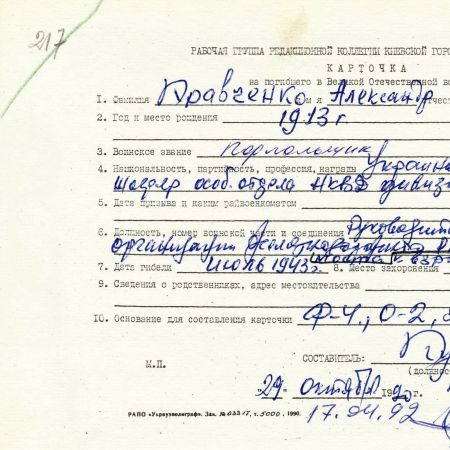 217
РАБОЧАЯ ГРУППА РЕДАКЦИОННОЙ КОЛЛЕГИИ КИЕВСКОЙ ГОРО
КАРТОЧКА
на погибшего в Великой Отечественной во
1. Фамилия Кравченко Имя Александр Отчест
2. Год и место рождения 1913 г.
3. Воинское звание подпольщик
4. Национальность, партийность, профессия, награды Украине
шофер особ. отдела НКВД дивиз
5. Дата призыва и каким райвоенкоматом
6. Должность, номер воинской части и соединения Руководит
организации
7. Дата гибели июль 1943 г. 8. Место захоронения
9. Сведения о родственниках, адрес местожительства
10. Основание для составления карточки Ф-4, О-2,
СОСТАВИТЕЛЬ:
М.П. (должнос
"29" октября 1990г.
РАПО «Укрвузполиграф». Зак. № 63317, т. 5000, 1990.
17.04.92